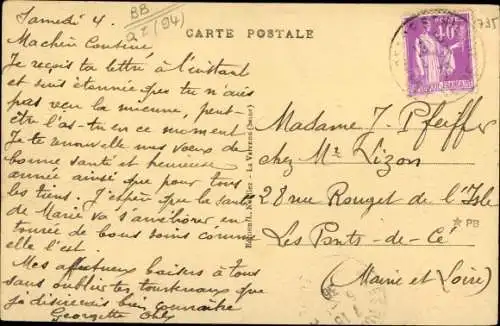 Samedi 4.
BB
2x (94)
Ma chère Cousine
Je reçois ta lettre à l'instant
et suis étonnée que tu n'aies
pas reçu la mienne, peut-
être l'as-tu en ce moment
Je te renouvelle mes vœux de
bonne santé et heureuse
année ainsi que pour tous
les tiens. J'espère que la santé
de Marie va s'améliorer en-
tourée de bons soins comme
elle l'est.
Mes affectueux baisers à tous
sans oublier que
je désirerais bien connaître
Georgette
CARTE POSTALE
40c
735
Madame J. Pfeiffer
chez Mr Lizon
28 rue Rouget de l'Isle
Les Ponts-de-Cé
(Maine et Loire)
PB